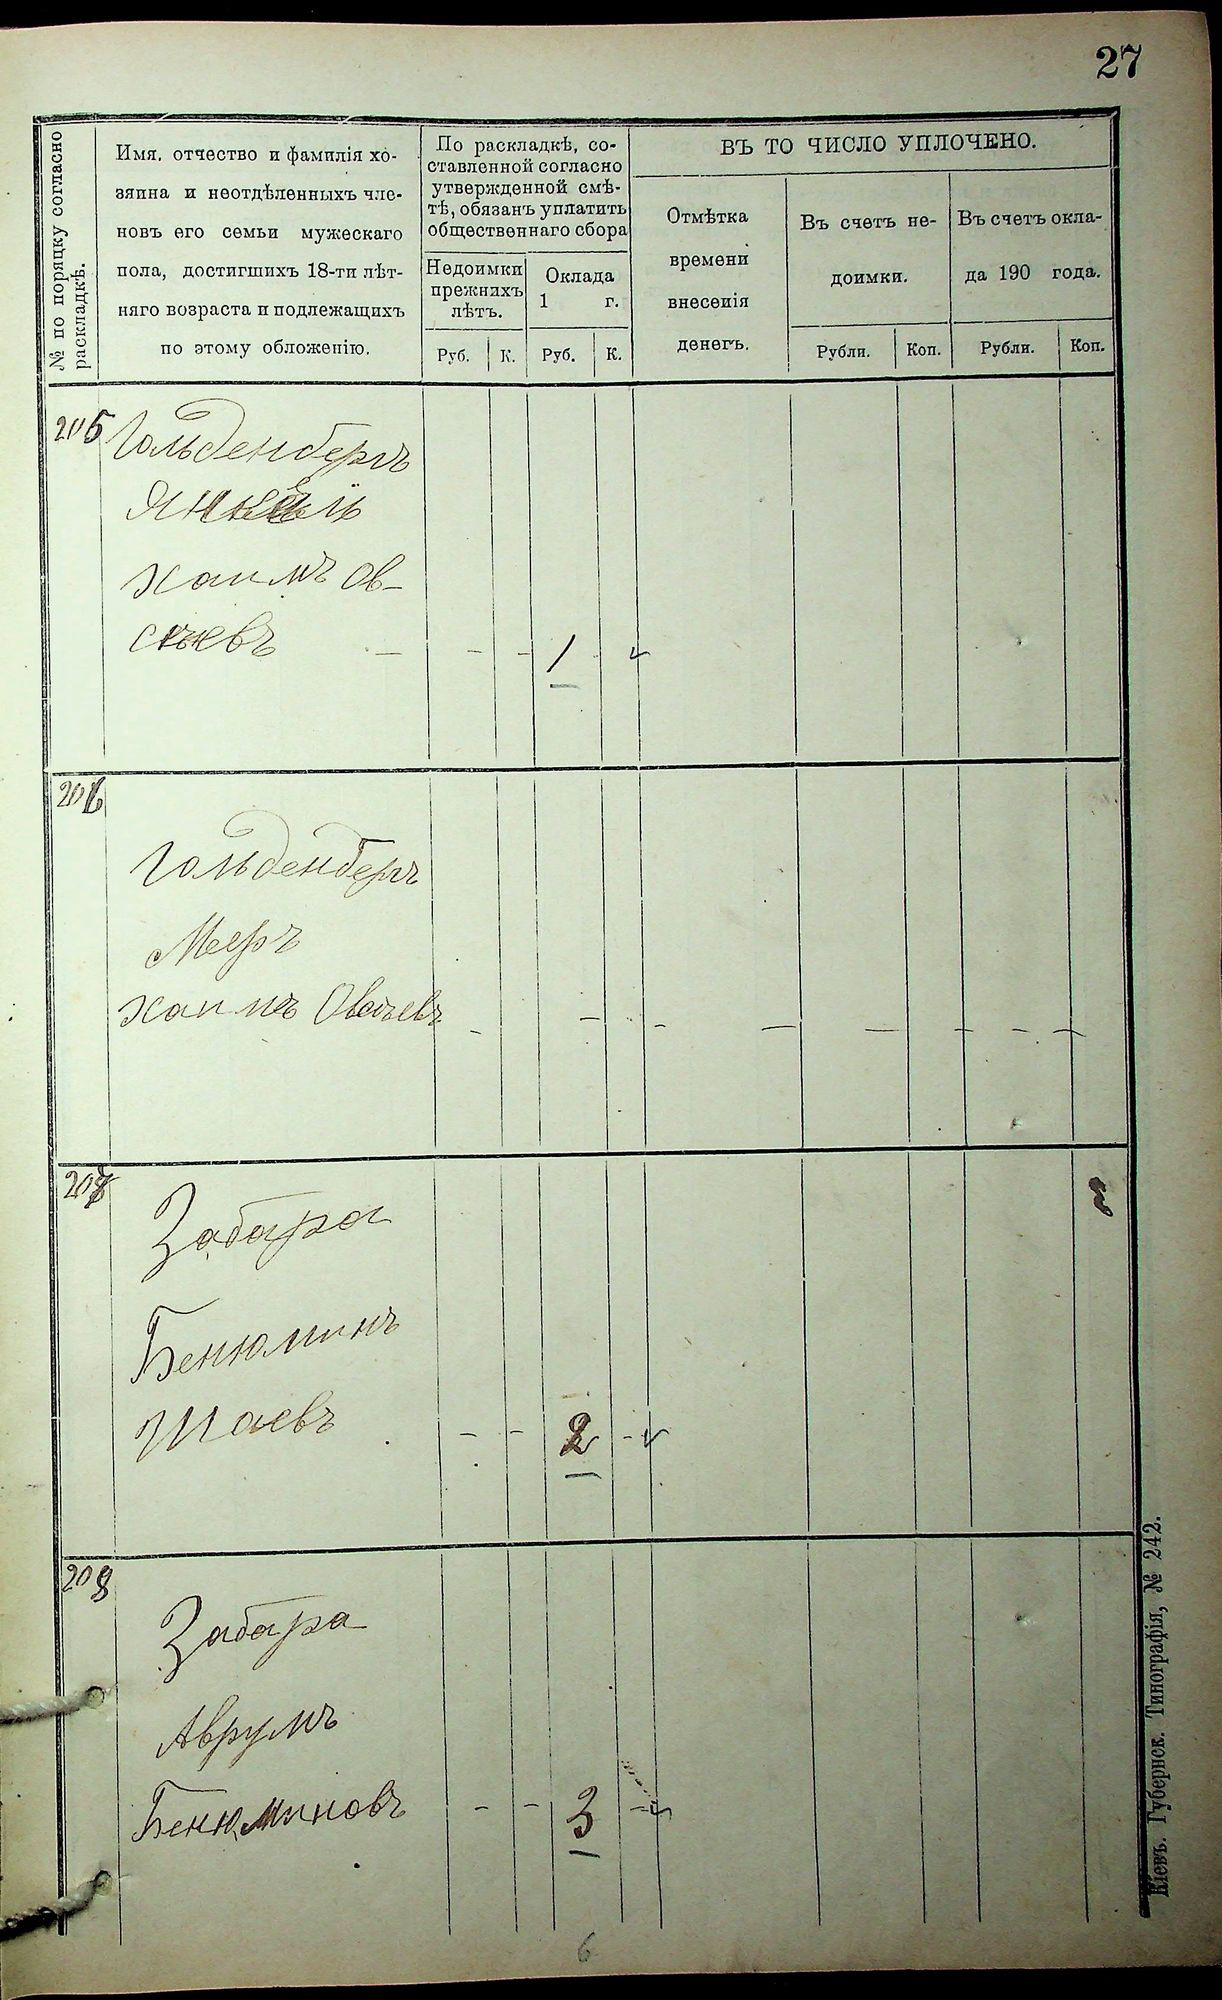 27
№ по поряцку согласно
раскладкѣ.
Имя, отчество и фамилія хо-
зяина и неотдѣленныхъ чле-
новъ его семьи мужескаго
пола, достигшихъ 18-ти лѣт-
няго возраста и подлежащихъ
по этому обложенію.
По раскладкѣ, со-
ставленной согласно
утвержденной смѣ-
тѣ, обязанъ уплатить
общественнаго сбора
Недоимки
прежнихъ
лѣтъ.
Оклада
1 г.
Руб. К. Руб. К.
ВЪ ТО ЧИСЛО УПЛОЧЕНО.
Отмѣтка
времени
внесенія
денегъ.
Въ счетъ не-
доимки.
Рубли. Коп.
Въ счетъ окла-
да 190 года.
Рубли. Коп.
205 Гольденбергъ
Янкель
Хаимъ Ов-
сѣевъ — - - 1
206
Гольденбергъ
Мееръ
Хаимъ Овсѣевъ - — - — — - - —
207
Забара
Бенюминъ
Шаевъ - - 2 -
208
Забара
Аврумъ
Бенюминовъ - - 3 -
6
Кіевъ. Губернск. Типографія, № 242.